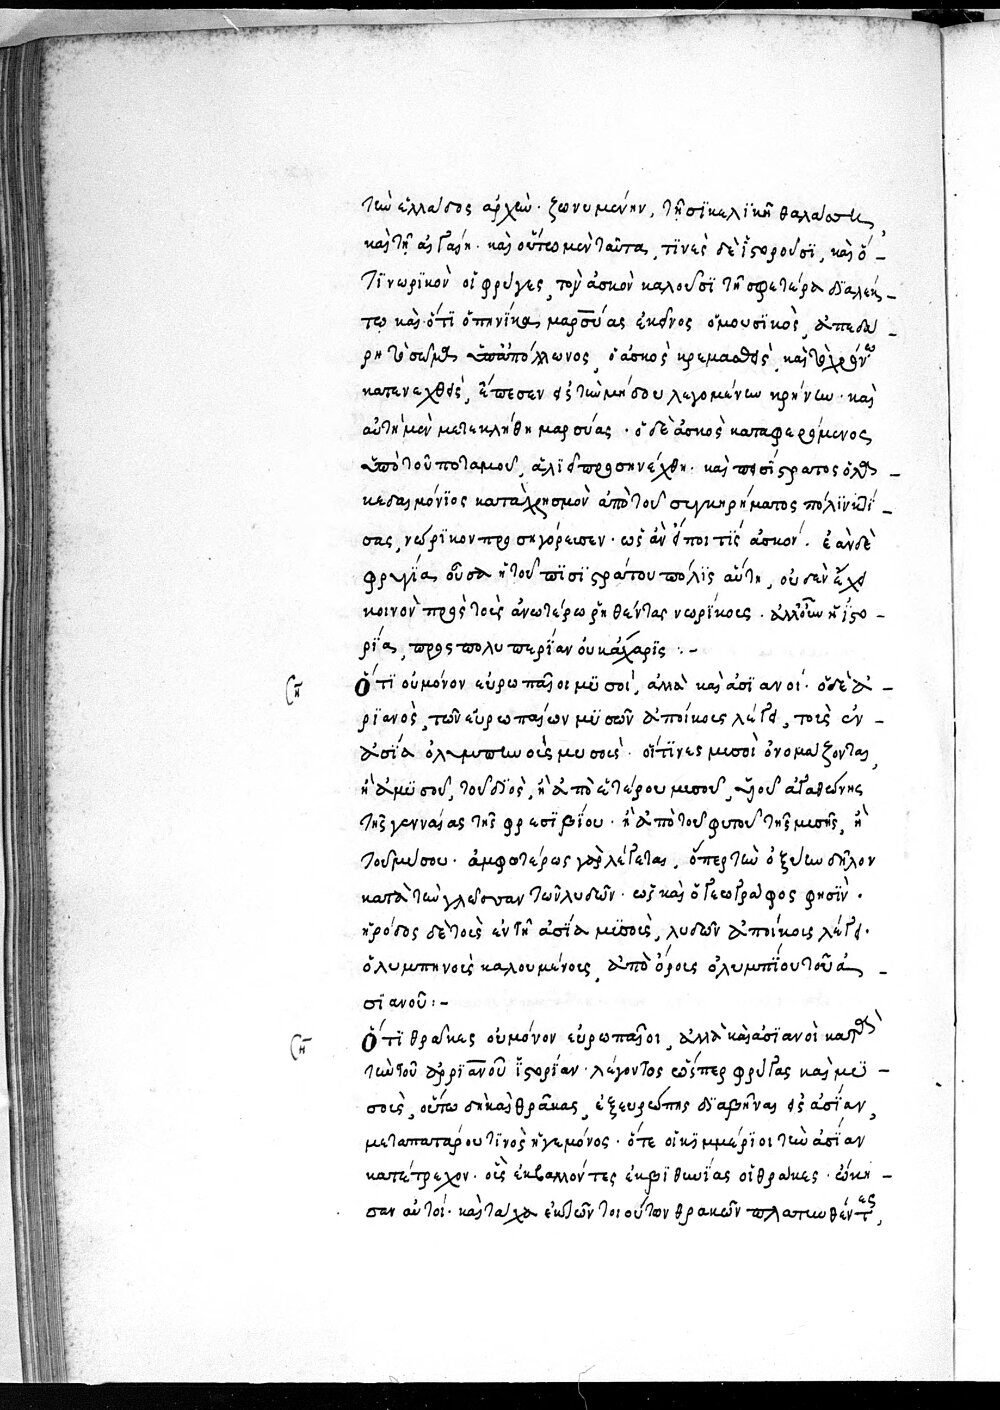 τῶν ἑλλάδος ἀρχῶν· ζωννυμένην, τῆ σϊκελϊκῆ θαλάσση,
καὶ τῆ αἰγαίη· καὶ οὕτω μὲν ταῦτα, τϊνὲς δὲ ἱστοροῦσϊ, καὶ ὅ-
τϊ νωρϊκὸν οἱ φρύγες, τὸν ἀσκὸν καλοῦσϊ τῆ σφετέρα δϊαλέκ-
τω καὶ ὅτϊ ὁπηνίκα μαρσύας ἐκεῖνος ὁ μουσϊκὸς, ἀπεδά-
ρη τὸ σῶμα ὑπὸ ἀπόλλωνος, ὁ ἀσκὸς κρεμασθεὶς, καὶ τῶ χρόνω
κατενεχθεὶς, ἔπεσεν εἰς τὴν μήδου λεγομένων κρήνην· καὶ
αὐτὴ μὲν μετεκλήθη μαρσύας· ὁ δὲ ἀσκὸς καταφερόμενος
ὑπὸ τοῦ ποταμοῦ, ἁλιεῖ προσηνέχθη· καὶ πεισίστρατος ὁ λα-
κεδαιμόνϊος κατὰ χρησμὸν ἀπὸ τοῦ συγκηρήματος πόλϊν κτί-
σας, νωρϊκον προσηγόρευσεν· ὡς ἂν εἴποι τϊς ἀσκόν. ἐὰν δὲ
φρυγία οὖσα ἡ τοῦ πϊσϊστράτου πόλϊς αὕτη, οὐδὲν ἔχει
κοινὸν πρὸς τοὺς ἀνωτέρω ῥηθέντας νωρϊκούς. ἀλλ' οὖν ἡ ἱστο-
ρία, πρὸς πολυπειρίαν οὐκ ἄχαρϊς :-
Ὅτϊ οὐ μόνον εὐρωπαῖοι μϋσοὶ, ἀλλὰ καὶ ἀσϊανοί· ὁ δὲ ἀ-
ρϊανὸς, τῶν εὐρωπαίων μϋσῶν ἀποίκους λέγει, τοὺς ἐν
ἀσία ὀλυμπηνοὺς μυσούς· οἵτϊνες μυσοὶ ὀνομάζονται,
ἢ ἀ μϋσοῦ, τοῦ δϊὸς, ἢ ἀπὸ ἑτέρου μυσοῦ, υἱοῦ ἀγαθώνης
τῆς γενναίας τῆς φρεσϊβίου· ἢ ἀπὸ τοῦ φυτοῦ τῆς μυσῆς, ἢ
τοῦ μυσου· ἀμφοτέρως γὰρ λέγεται, ὅπερ τὴν ὀξύην δηλον
κατὰ τὴν γλῶσσαν τῶν λυδῶν· ὡς καὶ ὁ γεωγράφος φησϊν·
ἡρόδος δὲ τοὺς ἐν τῆ ἀσία μυσοὺς, λυδῶν ἀποίκους λέγει·
ὀλυμπηνοὺς καλουμένους, ἀπὸ ὄρους ὀλυμπίου τοῦ ἀ-
σϊανοῦ :-
Ὅτϊ θρᾶκες οὐ μόνον εὐρωπαῖοι, ἀλλὰ καὶ ἀσϊανοὶ κατὰ
τὴν τοῦ ἀρρϊανοῦ ἱστορίαν· λέγοντος ὥσπερ φρύγας καὶ μϋ-
σοὺς, οὕτω δὴ καὶ θρᾶκας, ἐξ εὐρώπης δϊαβῆναι εἰς ἀσίαν,
μετα παταρου τϊνὸς ἡγεμόνος· ὅτε οἱ κϊμμέριοι τὴν ἀσίαν
κατέτρεχον· οὓς ἐκβαλόντες ἐκ βϊθυνίας οἱ θρᾶκες· ᾤκη-
σαν αὐτοί· καὶ τάχα ἐκ τῶν τοιούτων θρακῶν πλατυνθέντες,